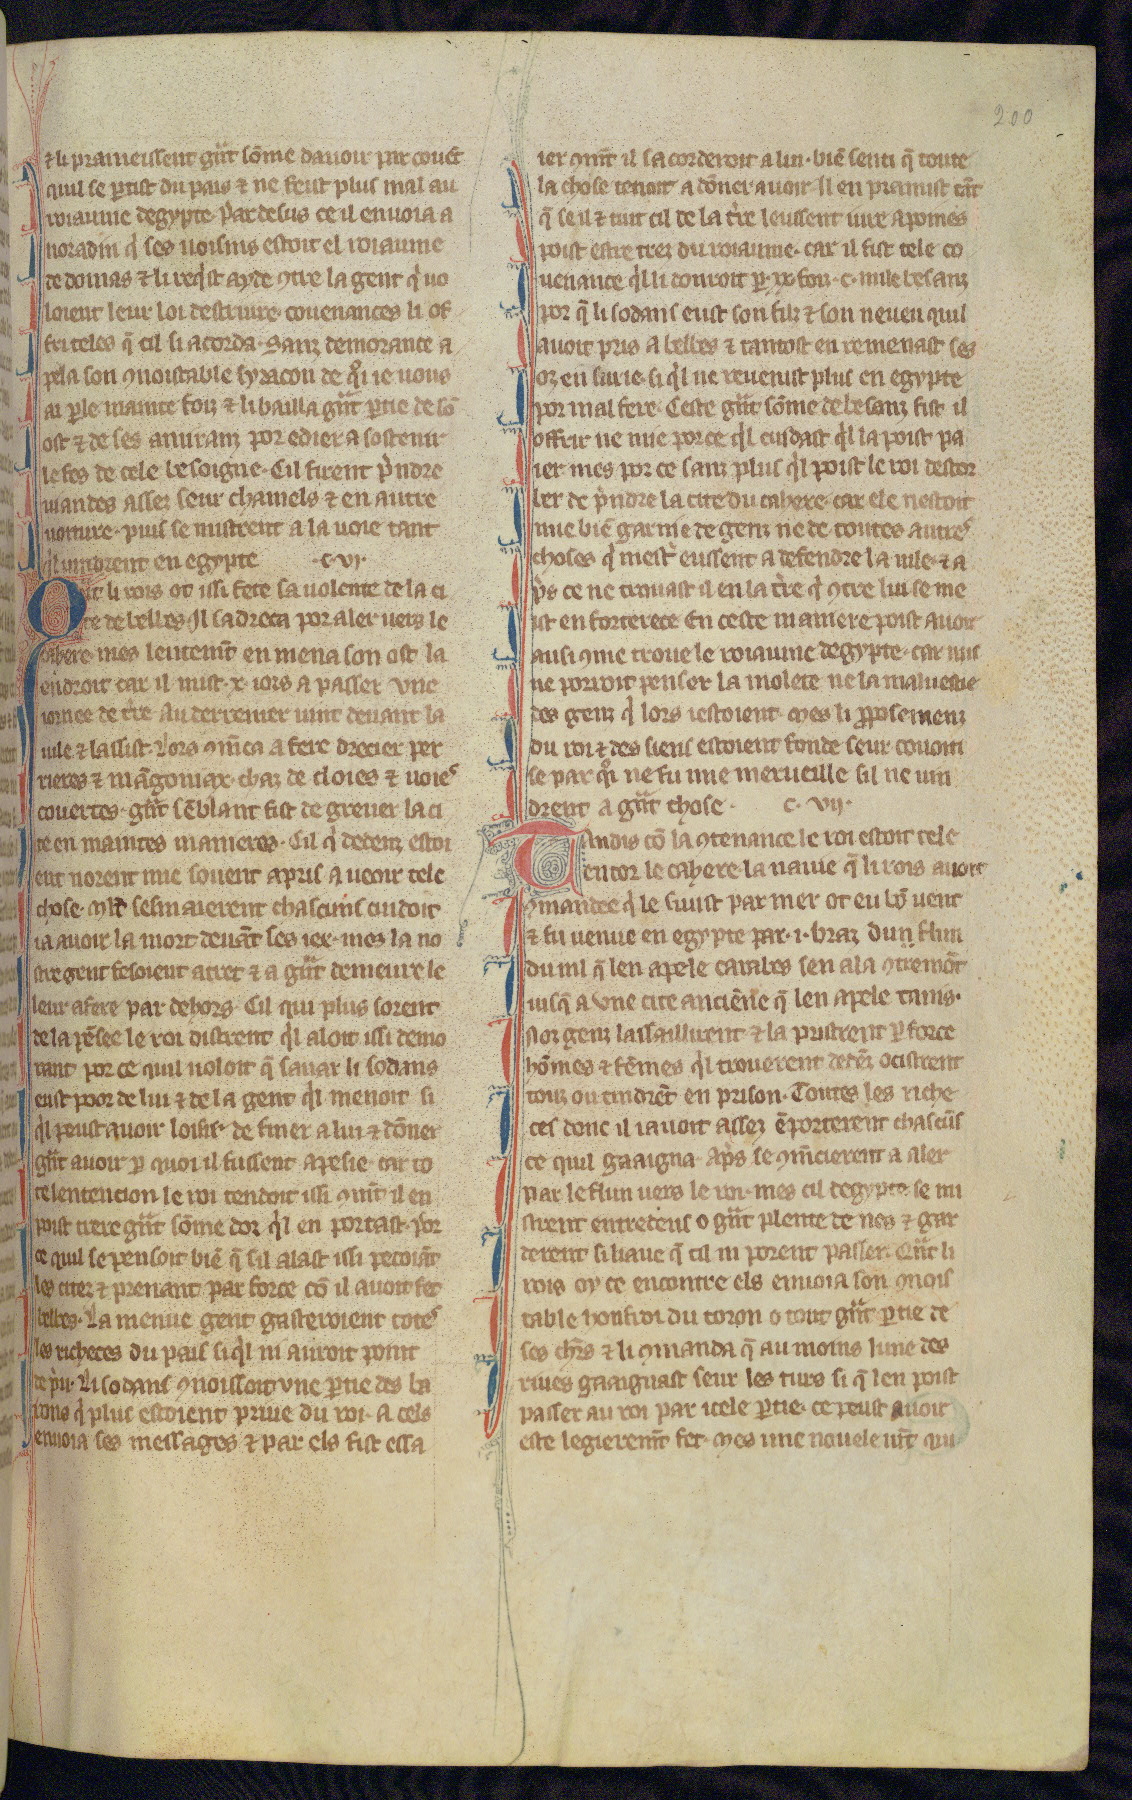 200
⁊ li prameissent gͣnt sōme davoir par couēt
quil se ꝑtist du pais ⁊ ne feist plus mal au
roiaume degypte. Par desus ce il envoia a
noradin q̇ ses voisins estoit el roiaume
de domas ⁊ li req̇st ayde ꝯtre la gent q̇ vo
loient leur loi destruire. covenances li of
fri teles q̄ cil si acorda. Sanz demorance a
pela son ꝯnoistable syracon de q̊i ie vous
ai ꝑle mainte foiz ⁊ li bailla gͣnt ꝑtie de sō
ost ⁊ de ses amiranz por edier a sostenir
le fes de cele besoigne. Cil firent p̄ndre
viandes assez seur chamels ⁊ en autre
voiture. puis se mistrent a la voie tant
q̇l vindrent en egypte .c. vj.
Qͣnt li rois ot issi fete sa volente de la ci
te de belbes. Il sadreca por aler vers le
cahere. mes lentemēt en mena son ost la
endroit car il mist .x. iors a passer une
iornee de tr̄e. Au derrenier vint devant la
vile ⁊ lassist. Lors ꝯmēca a fere drecier per
rieres ⁊ māgoniax. chaz de cloies ⁊ voies
couvertes. gͣnt sēblant fist de grever la ci
te en maintes manieres. Cil q̇ dedenz estoi
ent norent mie sovent apris a veoir tele
chose. ml̄t sesmaierent chascuns cuidoit
ia avoir la mort devāt ses iex. mes la no
stre gent fesoient atret ⁊ a gͣnt demeure le
leur afere par dehors. Cil qui plus sorent
de la pēsee le roi distrent q̇l aloit issi demo
rant por ce quil voloit q̄ savar li sodans
eust poor de lui ⁊ de la gent q̇l menoit si
q̇l peust avoir loisir de finer a lui ⁊ dōner
gͣnt avoir ꝑ quoi il fussent apesie. car to
te lentencion le roi tendoit issi ꝯmēt il en
poist trere gͣnt sōme dor q̇l en portast. Por
ce quil se pensoit biē q̄ sil alast issi pecoiāt
les citez ⁊ prenant par force cō il avoit fet
belbes. La menue gent gasteroient totes
les richeces du pais si q̇l ni auroit point
de pv. Li sodans ꝯnoissoit une ꝑtie des ba
rons q̇ plus estoient prive du roi. a cels
envoia ses messages ⁊ par els fist essa
ier ꝯmēt il sacorderoit a lui. biē senti q̄ toute
la chose tenoit a dōner avoir. Il en pramist tāt
q̄ se il ⁊ tuit cil de la tr̄e leussent iure a poines
poist estre trez du roiaume. car il fist tele co
venance q̇l li donroit ꝑ .xx. foiz .c. mile besanz
por q̄ li sodans eust son filz ⁊ son neveu quil
avoit pris a belbes ⁊ tantost en remenast ses
oz en surie. si q̇l ne revenist plus en egypte
por mal fere. Ceste gͣnt sōme de besanz fist il
offrir ne mie por ce q̇l cuidast q̇l la poist pa
ier mes por ce sanz plus q̇l poist le roi destor
ber de p̄ndre la cite du cahere. car ele nestoit
mie biē garnie de genz ne de toutes autres
choses q̇ mest̄ eussent a defendre la vile. ⁊ a
p̄s ce ne trovast il en la tr̄e q̇ ꝯtre lui se me
ist en forterece. En ceste maniere poist avoir
ausi ꝯme trove le roiaume degypte. car nus
ne porroit penser la molete ne la mavestie
des genz q̇ lors iestoient. Mes li ꝓposemenz
du roi ⁊ des siens estoient fonde seur covoiti
se par q̊i ne fu mie merveille sil ne vin
drent a gͣnt chose. c. vij.
Tandis cō la ꝯtenance le roi estoit tele
entor le cahere. la navie q̄ li rois avoit
ꝯmandee q̇ le suivist par mer ot eu bō vent
⁊ fu venue en egypte par .i. braz dun flun
du nil q̄ len apele carabes sen ala ꝯtremōt
iusq̄ a une cite anciēne q̄ len apele tanis.
noz genz lassaillirent ⁊ la pristrent ꝑ force
hōmes ⁊ fēmes q̇l troverent dedēz ocistrent
touz ou tindrēt en prison. Toutes les riche
ces donc il i avoit assez ēporterent chascūs
ce quil gaaigna. Ap̄s se ꝯmēcierent a aler
par le flun vers le roi. mes cil degypte se mi
strent entredeus o gͣnt plente de nes ⁊ gar
derent si liaue q̄ cil ni porent passer. Qͣnt li
rois oy ce encontre els envoia son ꝯnois
table honfroi du toron o tout gͣnt ꝑtie de
ses chr̄s ⁊ li ꝯmanda q̄ au moins lune des
rives gaaignast seur les turs si q̄ len poist
passer au roi par icele ꝑtie. ce peust avoir
este legieremēt fet. Mes une novele vīt qui